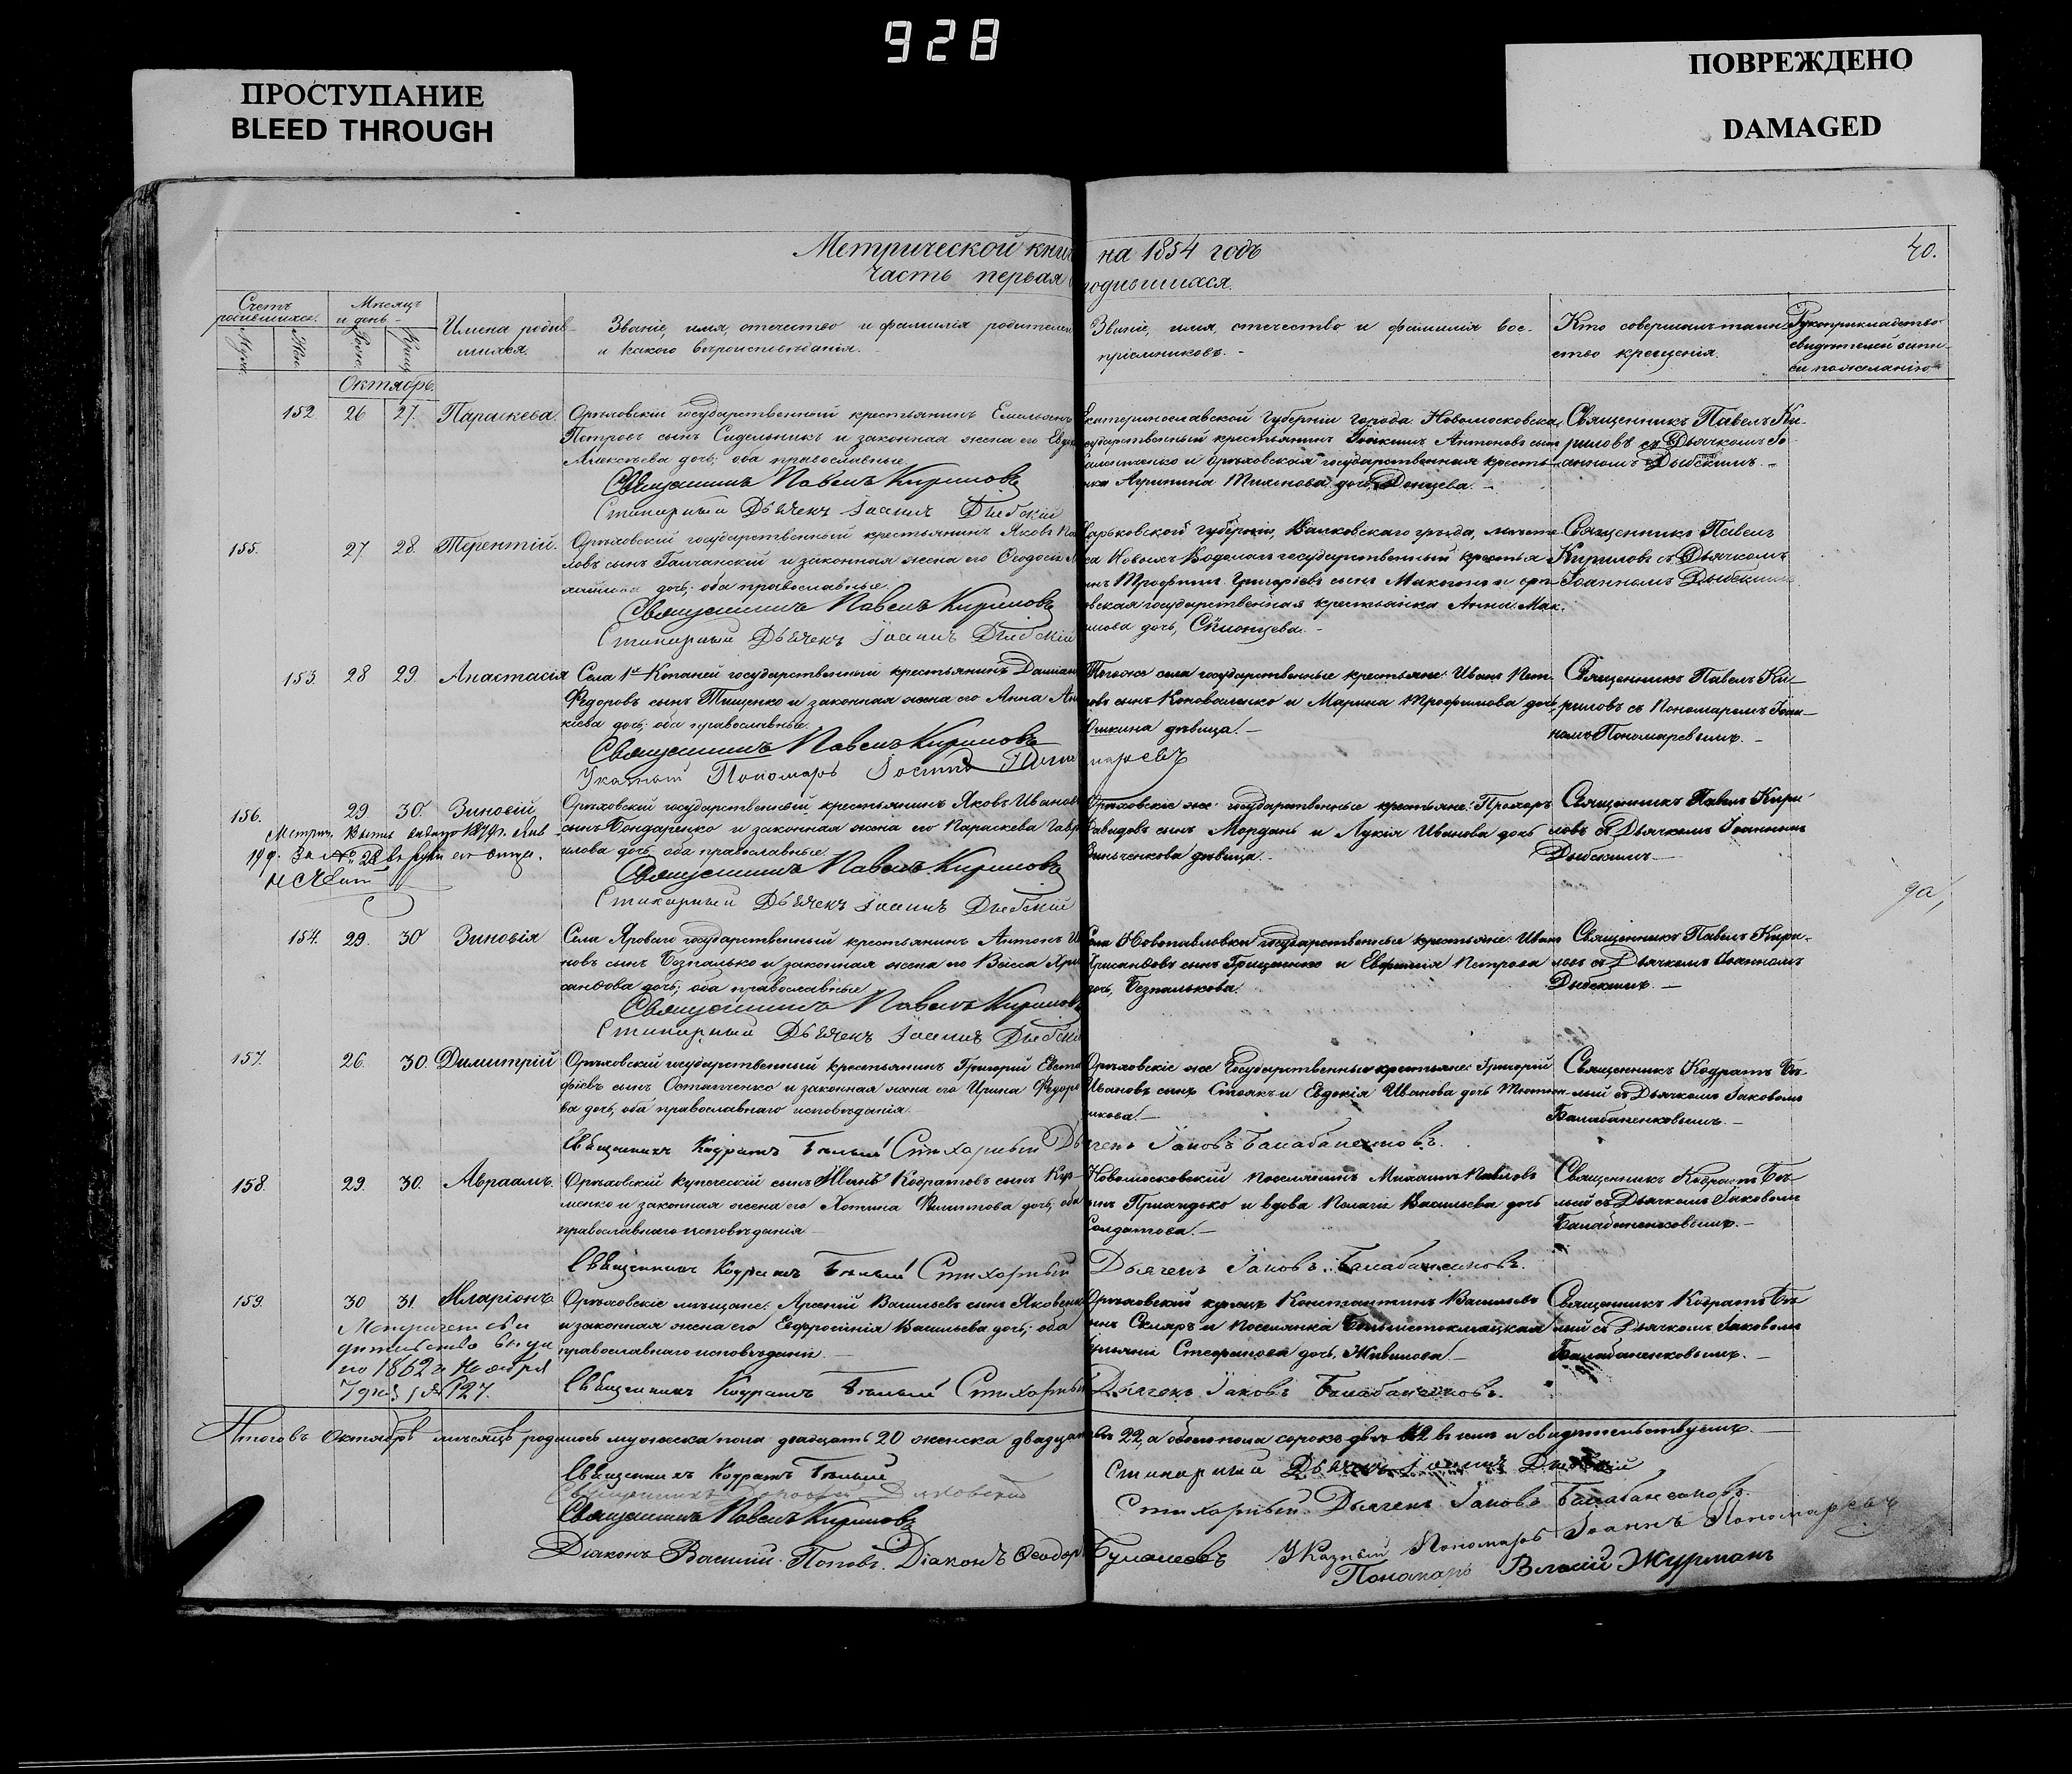 928
ПРОСТУПАНИЕ
BLEED THROUGH
ПОВРЕЖДЕНО
DAMAGED
Метрической книги на 1854 годъ
40.
часть первая о родившихся.
Счетъ родившихся.
Муж.
Жен.
Мѣсяцъ и день
Рожд.
Крещ.
Имена родив-
шихся.
Званіе, имя, отечество и фамилія родителей
и какого вѣроисповѣданія.
Званіе, имя, отечество и фамилія вос-
пріемниковъ.
Кто совершалъ таин-
ство крещенія.
Рукоприкладство
свидѣтелей запи-
си по желанію
Октябрь.
152. 26 27. Параскева.
Орѣховскій государственный крестьянинъ Емельянъ
Петровъ сынъ Сидельникъ и законная жена его
Алексѣева дочь; оба православные.
Священникъ Павелъ Кириловъ
Стихарный Дьячекъ Іоаннъ Дыбскій
Екатеринославской губерніи города Новомосковска,
государственный крестьянинъ Іоакимъ Антоновъ сынъ
и орѣховская государственная кресть-
нка Агрипина Тихонова дочь, Донцева.
Священникъ Павелъ Ки-
риловъ съ Дьячкомъ Іо-
анномъ Дыбскимъ.
155. 27 28. Терентій.
Орѣховскій государственный крестьянинъ Яковъ
ловъ сынъ Галчанскій и законная жена его Ѳеодосія
дочь; оба православные
Священникъ Павелъ Кириловъ
Стихарный Дьячекъ Іоаннъ Дыбскій
Харьковской губерніи, Валковскаго уѣзда, мѣстеч-
ка Новыхъ Водолагъ государственный крестья
инъ Трофимъ Григорьевъ сынъ и орѣ-
овская государственная крестьянка Анна Мак-
имова дочь,
Священникъ Павелъ
Кириловъ съ Дьячкомъ
Іоанномъ Дыбскимъ
153. 28 29. Анастасія
Села 1й Копаней государственный крестьянинъ Даміанъ
Федоровъ сынъ Тищенко и законная жена его Анна
кіева дочь; оба православные
Священникъ Павелъ Кириловъ
Указный Пономарь Іоаннъ Пономаревъ
Того же села государственные крестьяне: Иванъ Пет-
ровъ сынъ Коноваленко и Марина Трофимова дочь
дѣвица.
Священникъ Павелъ Ки-
риловъ съ Пономаремъ Іоан-
номъ Пономаревымъ.
156. 29. 30. Зиновій
Орѣховскій государственный крестьянинъ Яковъ Ивановъ
сынъ Бондаренко и законная жена его Параскева Гавр
илова дочь, оба православные.
Священникъ Павелъ Кириловъ
Стихарный Дьячекъ Іоаннъ Дыбскій
Орѣховскіе же государственные крестьяне: Прохоръ
Давидовъ сынъ Морданъ и Лукія Иванова дочь
Зинченкова дѣвица.
Священникъ Павелъ Кири-
ловъ съ Дьячкомъ Іоанномъ
Дыбскимъ.
да,
154. 29. 30 Зиновія
Села Яроваго государственный крестьянинъ Антонъ
новъ сынъ Безпалько и законная жена его Васса Хри
санѳова дочь; оба православные
Священникъ Павелъ Кириловъ
Стихарный Дьячекъ Іоаннъ Дыбскій
Села Новопавловки государственные крестьяне: Иванъ
Хрисанѳовъ сынъ Грищенко и Евфимія Петрова
дочь, Безпалькова.
Священникъ Павелъ Кири-
ловъ съ Дьячкомъ Іоанномъ
Дыбскимъ.
157. 26. 30. Димитрій
Орѣховскій государственный крестьянинъ Григорій Евста
фіевъ сынъ Остапченко и законная жена его Ирина Федоро
ва дочь, оба православнаго исповѣданія.
Священникъ Кодратъ Бѣлый Стихарный Дьячекъ Іаковъ Балабаненковъ.
Орѣховскіе же Государственные крестьяне: Григорій
Ивановъ сынъ Стоякъ и Евдокія Иванова дочь
икова.
Священникъ Кодратъ Бѣ-
лый съ Дьячкомъ Іаковомъ
Балабаненковымъ.
158. 29. 30. Авраамъ.
Орѣховскій купеческій сынъ Иванъ Кодратовъ сынъ
ленко и законная жена его Хотина Филиппова дочь, оба
православнаго исповѣданія
Священникъ Кодратъ Бѣлый Стихарный Дьячекъ Іаковъ Балабаненковъ.
Новомосковскій поселянинъ Михаилъ Павловъ
и вдова Пелагія Васильева дочь
Солдатова.
Священникъ Кодратъ Бѣ-
лый съ Дьячкомъ Іаковомъ
Балабаненковымъ.
159. 30 31. Иларіонъ
Орѣховскіе мѣщане: Арсеній Васильевъ сынъ Яковенко
и законная жена его Евфросинія Васильева дочь; оба
православнаго исповѣданія.
Священникъ Кодратъ Бѣлый Стихарный Дьячекъ Іаковъ Балабаненковъ.
Орѣховскій купецъ Константинъ Васильевъ
сынъ Скляръ и поселянка
Стефанова дочь, Живилова.
Священникъ Кодратъ Бѣ-
лый съ Дьячкомъ Іаковомъ
Балабаненковымъ.
Итого въ Октябрѣ мѣсяцѣ родилось мужеска пола двадцать 20 женска двадцать двѣ 22, а обоего пола сорокъ двѣ 42 въ чемъ и свидѣтельствуемъ.
Священникъ Кодратъ Бѣлый
Священникъ Павелъ Кириловъ
Діаконъ Василій Поповъ. Діаконъ Ѳеодоръ
Стихарный Дьячекъ Іоаннъ Дыбскій
Стихарный Дьячекъ Іаковъ Балабаненковъ.
Указный Пономарь Іоаннъ Пономаревъ
Пономарь Власій Журманъ